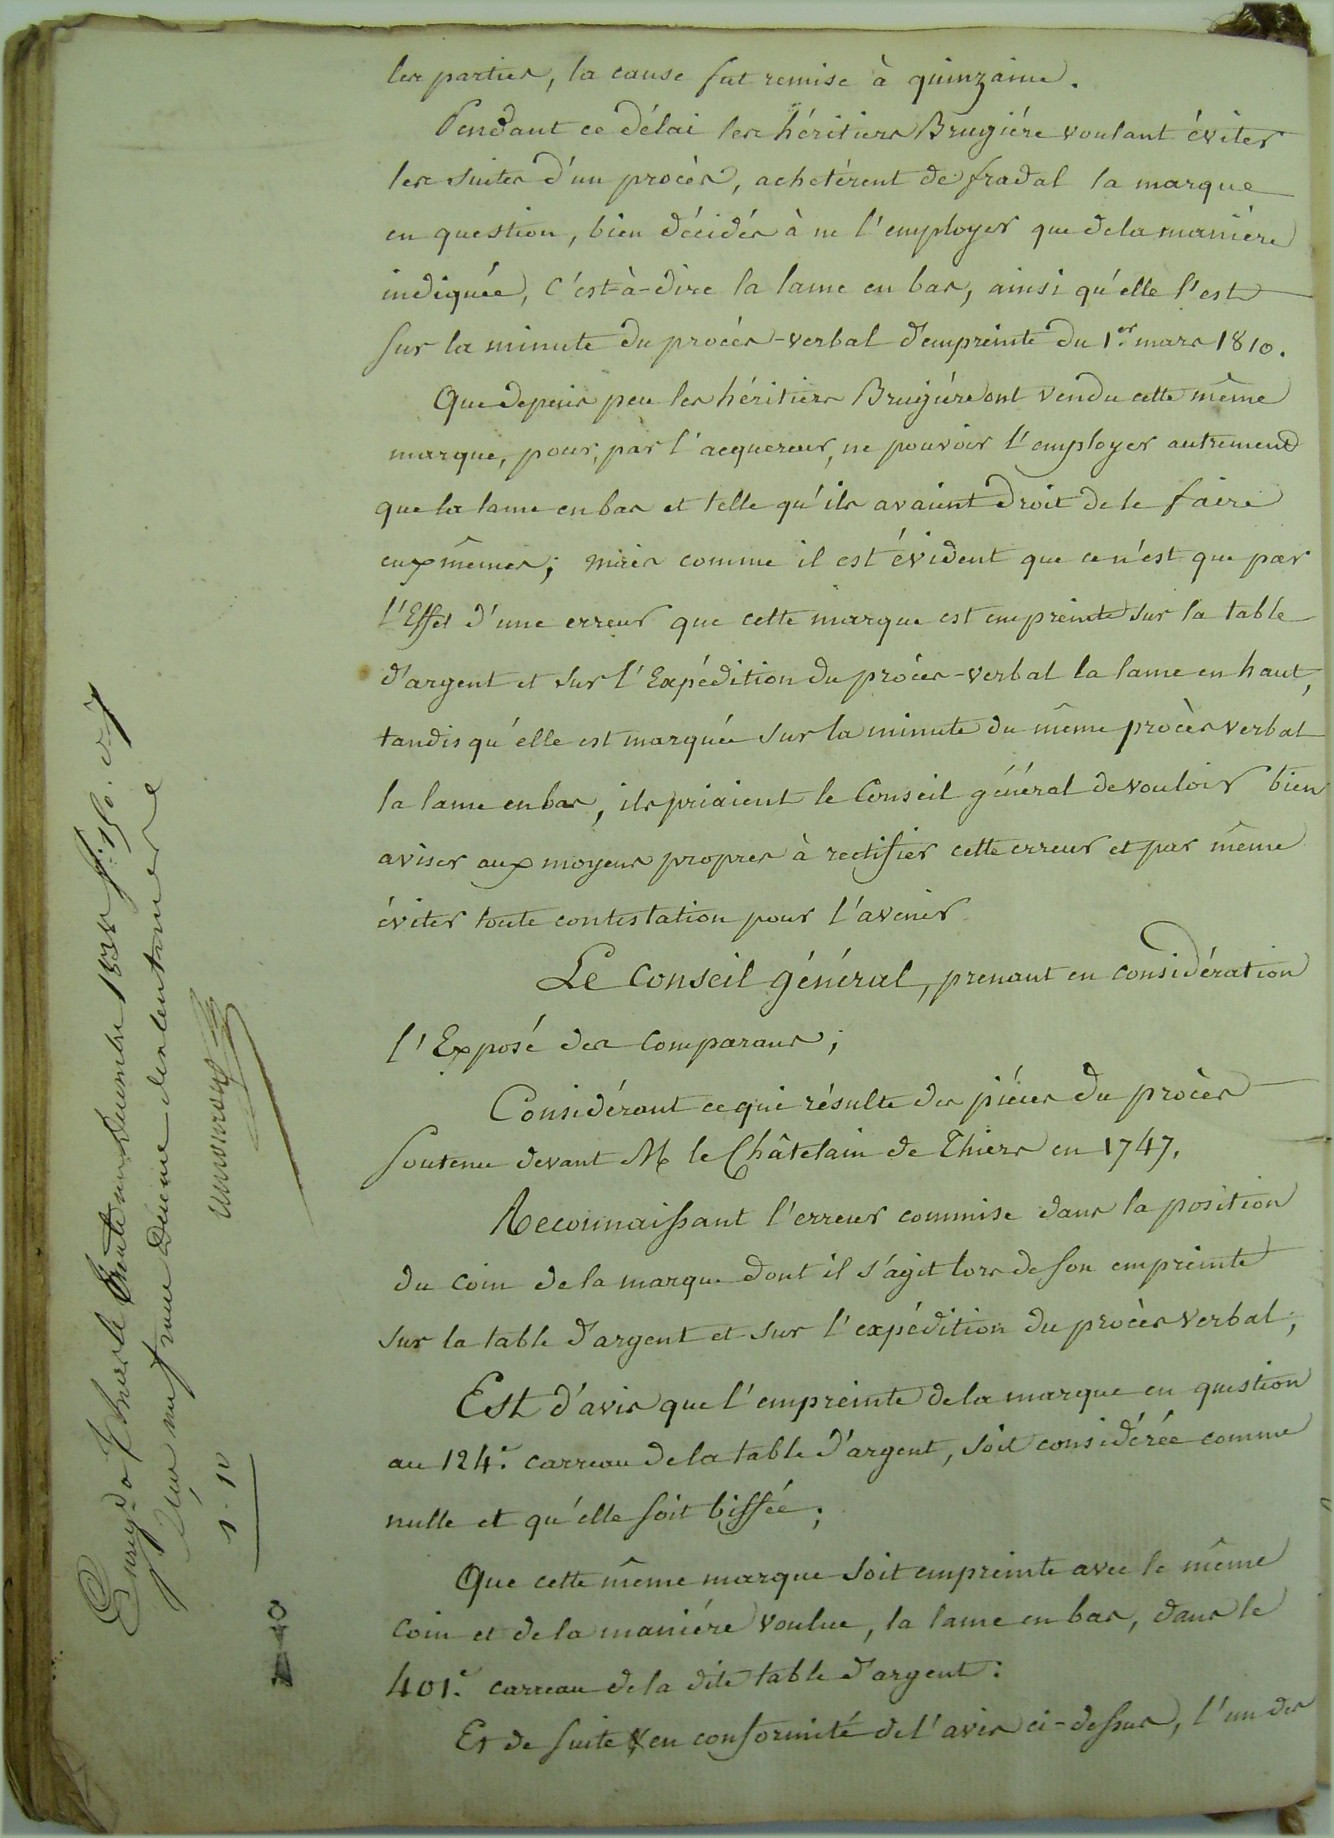 les parties, la cause fut remise à quinzaine.
Pendant ce délai les héritiers Brugière voulant éviter
les suites d'un procès, achetérent de fradal la marque
en question, bien décidés à ne l'employer que de la manière
indiquée, c'est-à-dire la lame en bas, ainsi qu'elle l'est
sur la minute du procès-verbal d'empreinte du 1.er mars 1810.
Que depuis peu les héritiers Brugière ont vendu cette même
marque, pour, par l'acquereur, ne pouvoir l'employer autrement
que la lame en bas et telle qu'ils avaient droit de le faire
eux mêmes; mais comme il est évident que ce n'est que par
l'Effet d'une erreur que cette marque est empreinte sur la table
d'argent et sur l'Expédition du procès-verbal la lame en haut,
tandis qu'elle est marquée sur la minute du même procès verbal
la lame en bas, ils priaient le Conseil général de vouloir bien
aviser aux moyens propres à rectifier cette erreur et par même
éviter toute contestation pour l'avenir
Le Conseil général, prenant en considération
l'Exposé des Comparans;
Considérant ce qui résulte des piéces du procès
soutenu devant M le Châtelain de Thiers en 1747.
Reconnaissant l'erreur commise dans la position
du coin de la marque dont il s'agit lors de son empreinte
sur la table d'argent et sur l'expédition du procès verbal;
Est d'avis que l'empreinte de la marque en question
au 124.e carreau de la table d'argent, soit considérée comme
nulle et qu'elle soit biffée;
Que cette même marque soit empreinte avec le même
coin et de la maniére voulue, la lame en bas, dans le
401.e carreau de la dite table d'argent:
Et de suite en conformité de l'avis ci-dessus, l'un des
Enreg. à Thiers le trente un décembre
un franc Décime
1-10